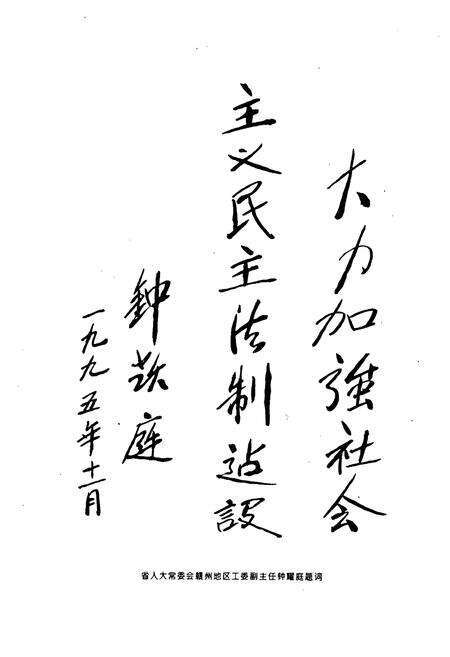 大力加強社会
主义民主法制建設
鈡跃庭
一九九五年十一月
省人大常委会赣州地区工委副主任钟耀庭题词